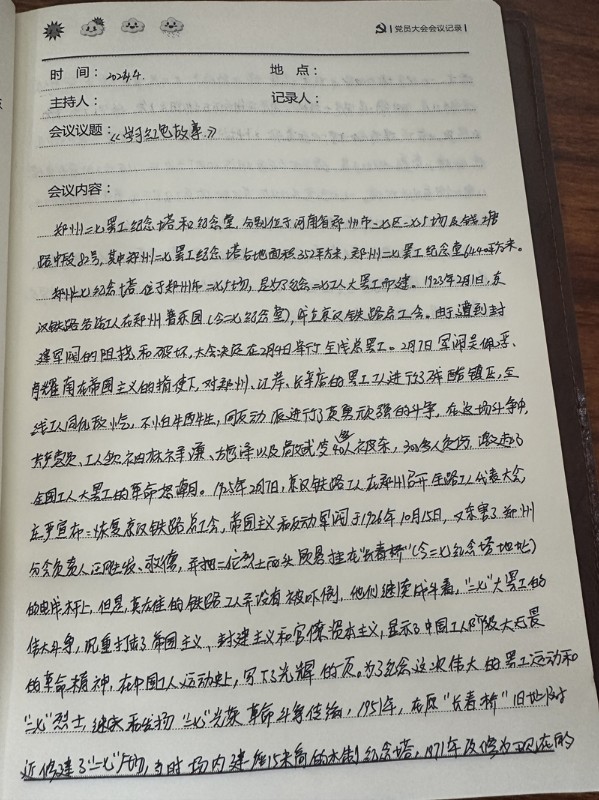 党员大会会议记录
时 间： 2024.4. 地 点：
主持人： 记录人：
会议议题：《学习红色故事》
会议内容：
郑州二七罢工纪念塔和纪念堂，分别位于河南省郑州市二七区二七广场及钱塘
路中段82号，其中郑州二七罢工纪念塔占地面积352平方米，郑州二七罢工纪念堂6440平方米。
郑州二七纪念塔位于郑州市二七广场，是为了纪念二七工人大罢工而建。1923年2月1日，京
汉铁路各站工人在郑州普乐园（今二七纪念堂），成立京汉铁路总工会。由于遭到封
建军阀的阻挠和破坏，大会决定在2月4日举行全线总罢工。2月7日军阀吴佩孚、
肖耀南在帝国主义的指使下，对郑州、江岸、长辛店的罢工工人进行了残酷镇压，全
线工人同仇敌忾，不怕牺牲，同反动派进行了英勇顽强的斗争，在这场斗争中，
共产党员、工人领袖林祥谦、施洋以及高斌等40人被杀，300多人负伤，激起了
全国工人大罢工的革命怒潮。1925年2月7日，京汉铁路工人在郑州召开全路工人代表大会，
庄严宣布：恢复京汉铁路总工会，帝国主义和反动军阀于1926年10月15日，又杀害了郑州
分会负责人汪胜友、司文德，并把二位烈士的头颅悬挂在"长春桥"（今二七纪念塔地址）
的电线杆上，但是，英雄的铁路工人并没有被吓倒，他们继续战斗着，"二七"大罢工的
伟大斗争，沉重打击了帝国主义、封建主义和官僚资本主义，显示了中国工人阶级大无畏
的革命精神，在中国工人运动史上，写下了光辉的一页。为了纪念这次伟大的罢工运动和
"二七"烈士，继承和发扬"二七"光荣革命斗争传统，1951年，在原"长春桥"旧址附
近修建了"二七"广场，当时场内建有15米高的木制纪念塔，1971年改修为现在的